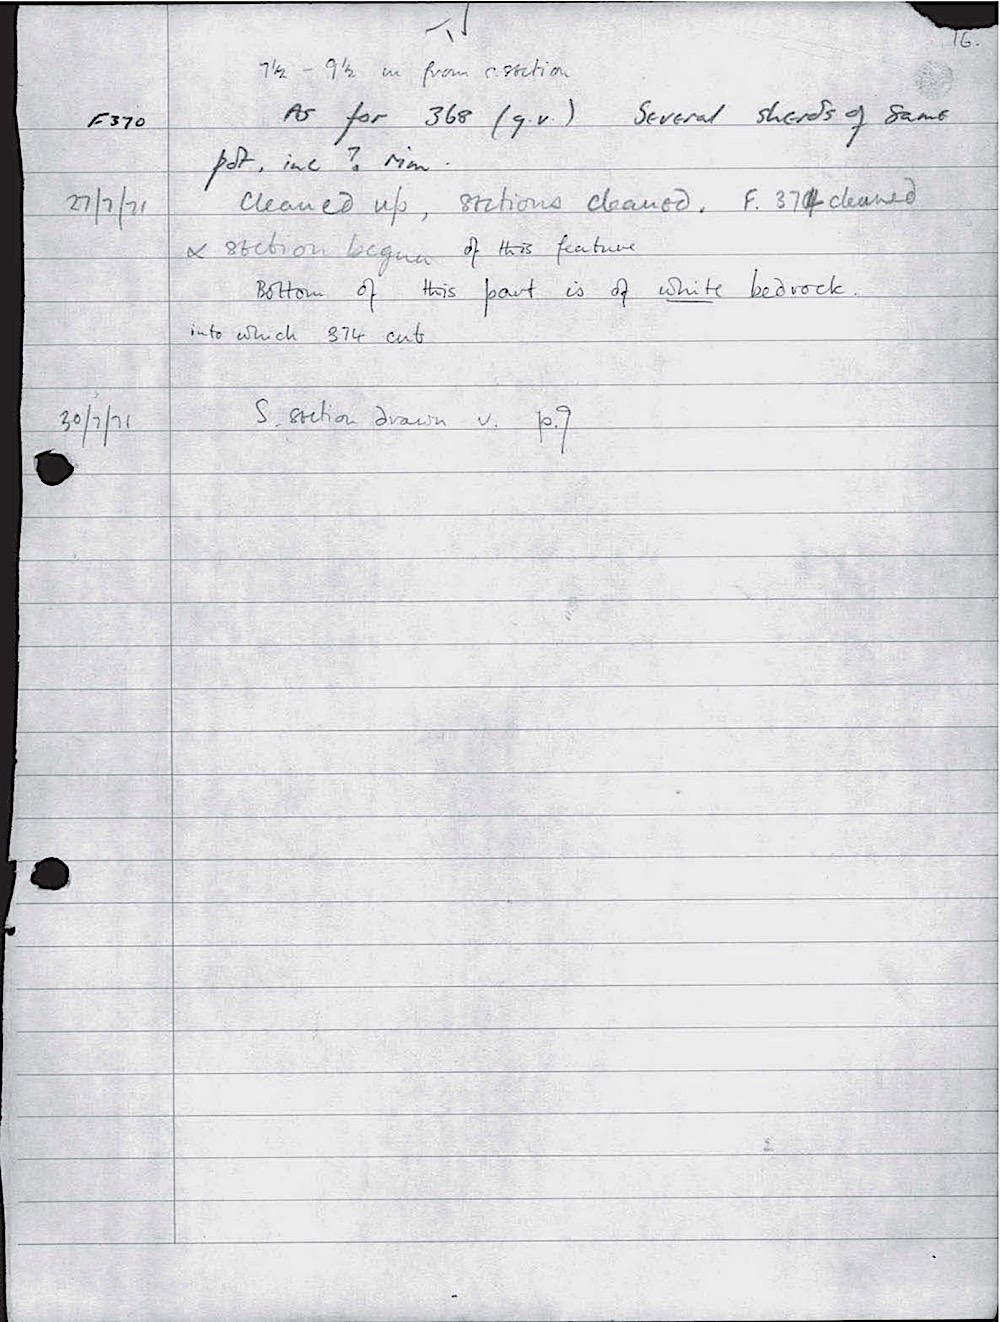 16.
7½ - 9½ in from section
F370 As for 368 (q.v.) Several sherds of same
pot, inc ? rim.
27/7/71 Cleaned up, sections cleaned. F. 374 cleaned
& section begun of this feature
Bottom of this part is of white bedrock.
into which 374 cut
30/7/71 S. section drawn v. p.9